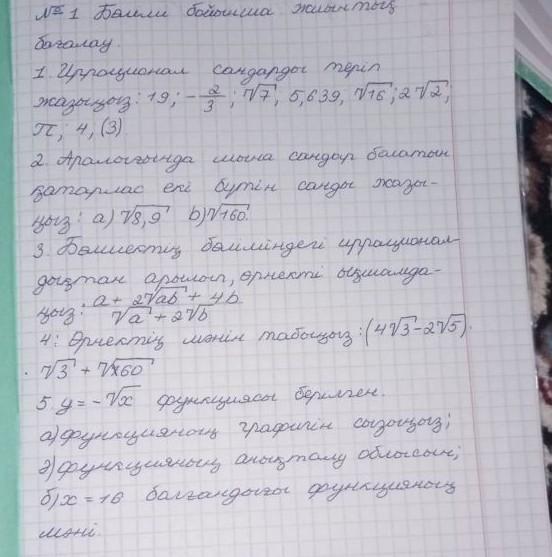 № 1 Бөлім бойынша жиынтық
бағалау.
1. Иррационал сандарды теріп
жазыңыз: 19; -2/3; √7, 5,639, √16; 2√2;
П; 4,(3).
2. Аралығында мына сандар болатын
қатарлас екі бүтін санды жазы-
ңыз: а) √8,9 b) √160.
3. Бөлшектің бөліміндегі иррационал-
дықтан арылып, өрнекті ықшамда-
ңыз: (a + 2√ab + 4b)/(√a + 2√b)
4: Өрнектің мәнін табыңыз: (4√3 - 2√5).
· √3 + √60
5. y = -√x функциясы берілген.
а) функцияның графигін сызыңыз;
ә) функцияның анықталу облысын;
б) x = 16 болғандағы функцияның
мәні.